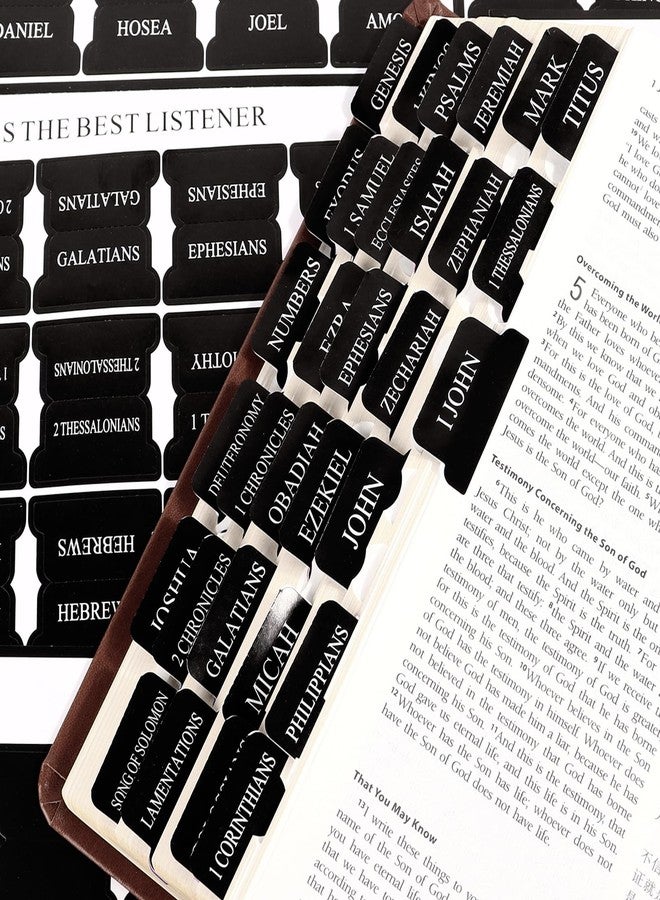 DANIEL
HOSEA
JOEL
S THE BEST LISTENER
GALATIANS
EPHESIANS
GALATIANS
EPHESIANS
2 THESSALONIANS
2 THESSALONIANS
HEBREWS
GENESIS
PSALMS
JEREMIAH
MARK
TITUS
EXODUS
1 SAMUEL
ECCLESIASTES
ISAIAH
ZEPHANIAH
1 THESSALONIANS
NUMBERS
EZRA
EPHESIANS
ZECHARIAH
1 JOHN
DEUTERONOMY
1 CHRONICLES
OBADIAH
EZEKIEL
JOHN
JOSHUA
2 CHRONICLES
GALATIANS
MICAH
PHILIPPIANS
SONG OF SOLOMON
LAMENTATIONS
1 CORINTHIANS
God must also
Overcoming the Worl
5 Everyone who be
has been born of G
the Father loves whoever
2By this we know that we
when we love God and ob
3For this is the love of God,
mandments. And his comm
densome. 4For everyone who ha
overcomes the world. And this is t
comes the world—our faith. 5W
comes the world except the one wh
Jesus is the Son of God?
Testimony Concerning the Son of God
6This is he who came by water and
Jesus Christ; not by the water only but
water and the blood. And the Spirit is the on
testifies, because the Spirit is the truth. 7For
are three that testify: 8the Spirit and the water
the blood; and these three agree. 9If we receive
testimony of men, the testimony of God is greate
for this is the testimony of God that he has borne
concerning his Son. 10Whoever believes in the Son
of God has the testimony in himself. Whoever does
not believe God has made him a liar, because he has
not believed in the testimony that God has borne
concerning his Son. 11And this is the testimony, that
God gave us eternal life, and this life is in his Son.
12Whoever has the Son has life; whoever does not
have the Son of God does not have life.
That You May Know
13I write these things to yo
name of the Son of God
you have eternal life
that we have to
according